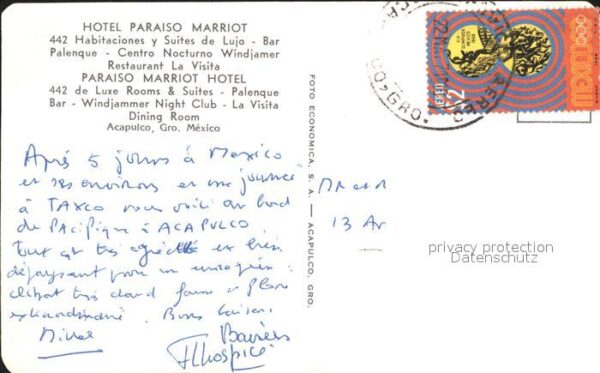 HOTEL PARAISO MARRIOT
442 Habitaciones y Suites de Lujo - Bar
Palenque - Centro Nocturno Windjamer
Restaurant La Visita
PARAISO MARRIOT HOTEL
442 de Luxe Rooms & Suites - Palenque
Bar - Windjammer Night Club - La Visita
Dining Room
Acapulco, Gro. México
Après 5 jours à Mexico
et ses environs et une journée
à TAXCO nous voici au bord
du PACIFIQUE à ACAPULCO.
Tout est très agréable et bien
dépaysant pour un
climat très chaud faune & flore
extraordinaire. Bons baisers
Baisers
FOTO ECONOMICA, S. A. — ACAPULCO, GRO.
13 Av
AEREO
MEXICO
privacy protection
Datenschutz